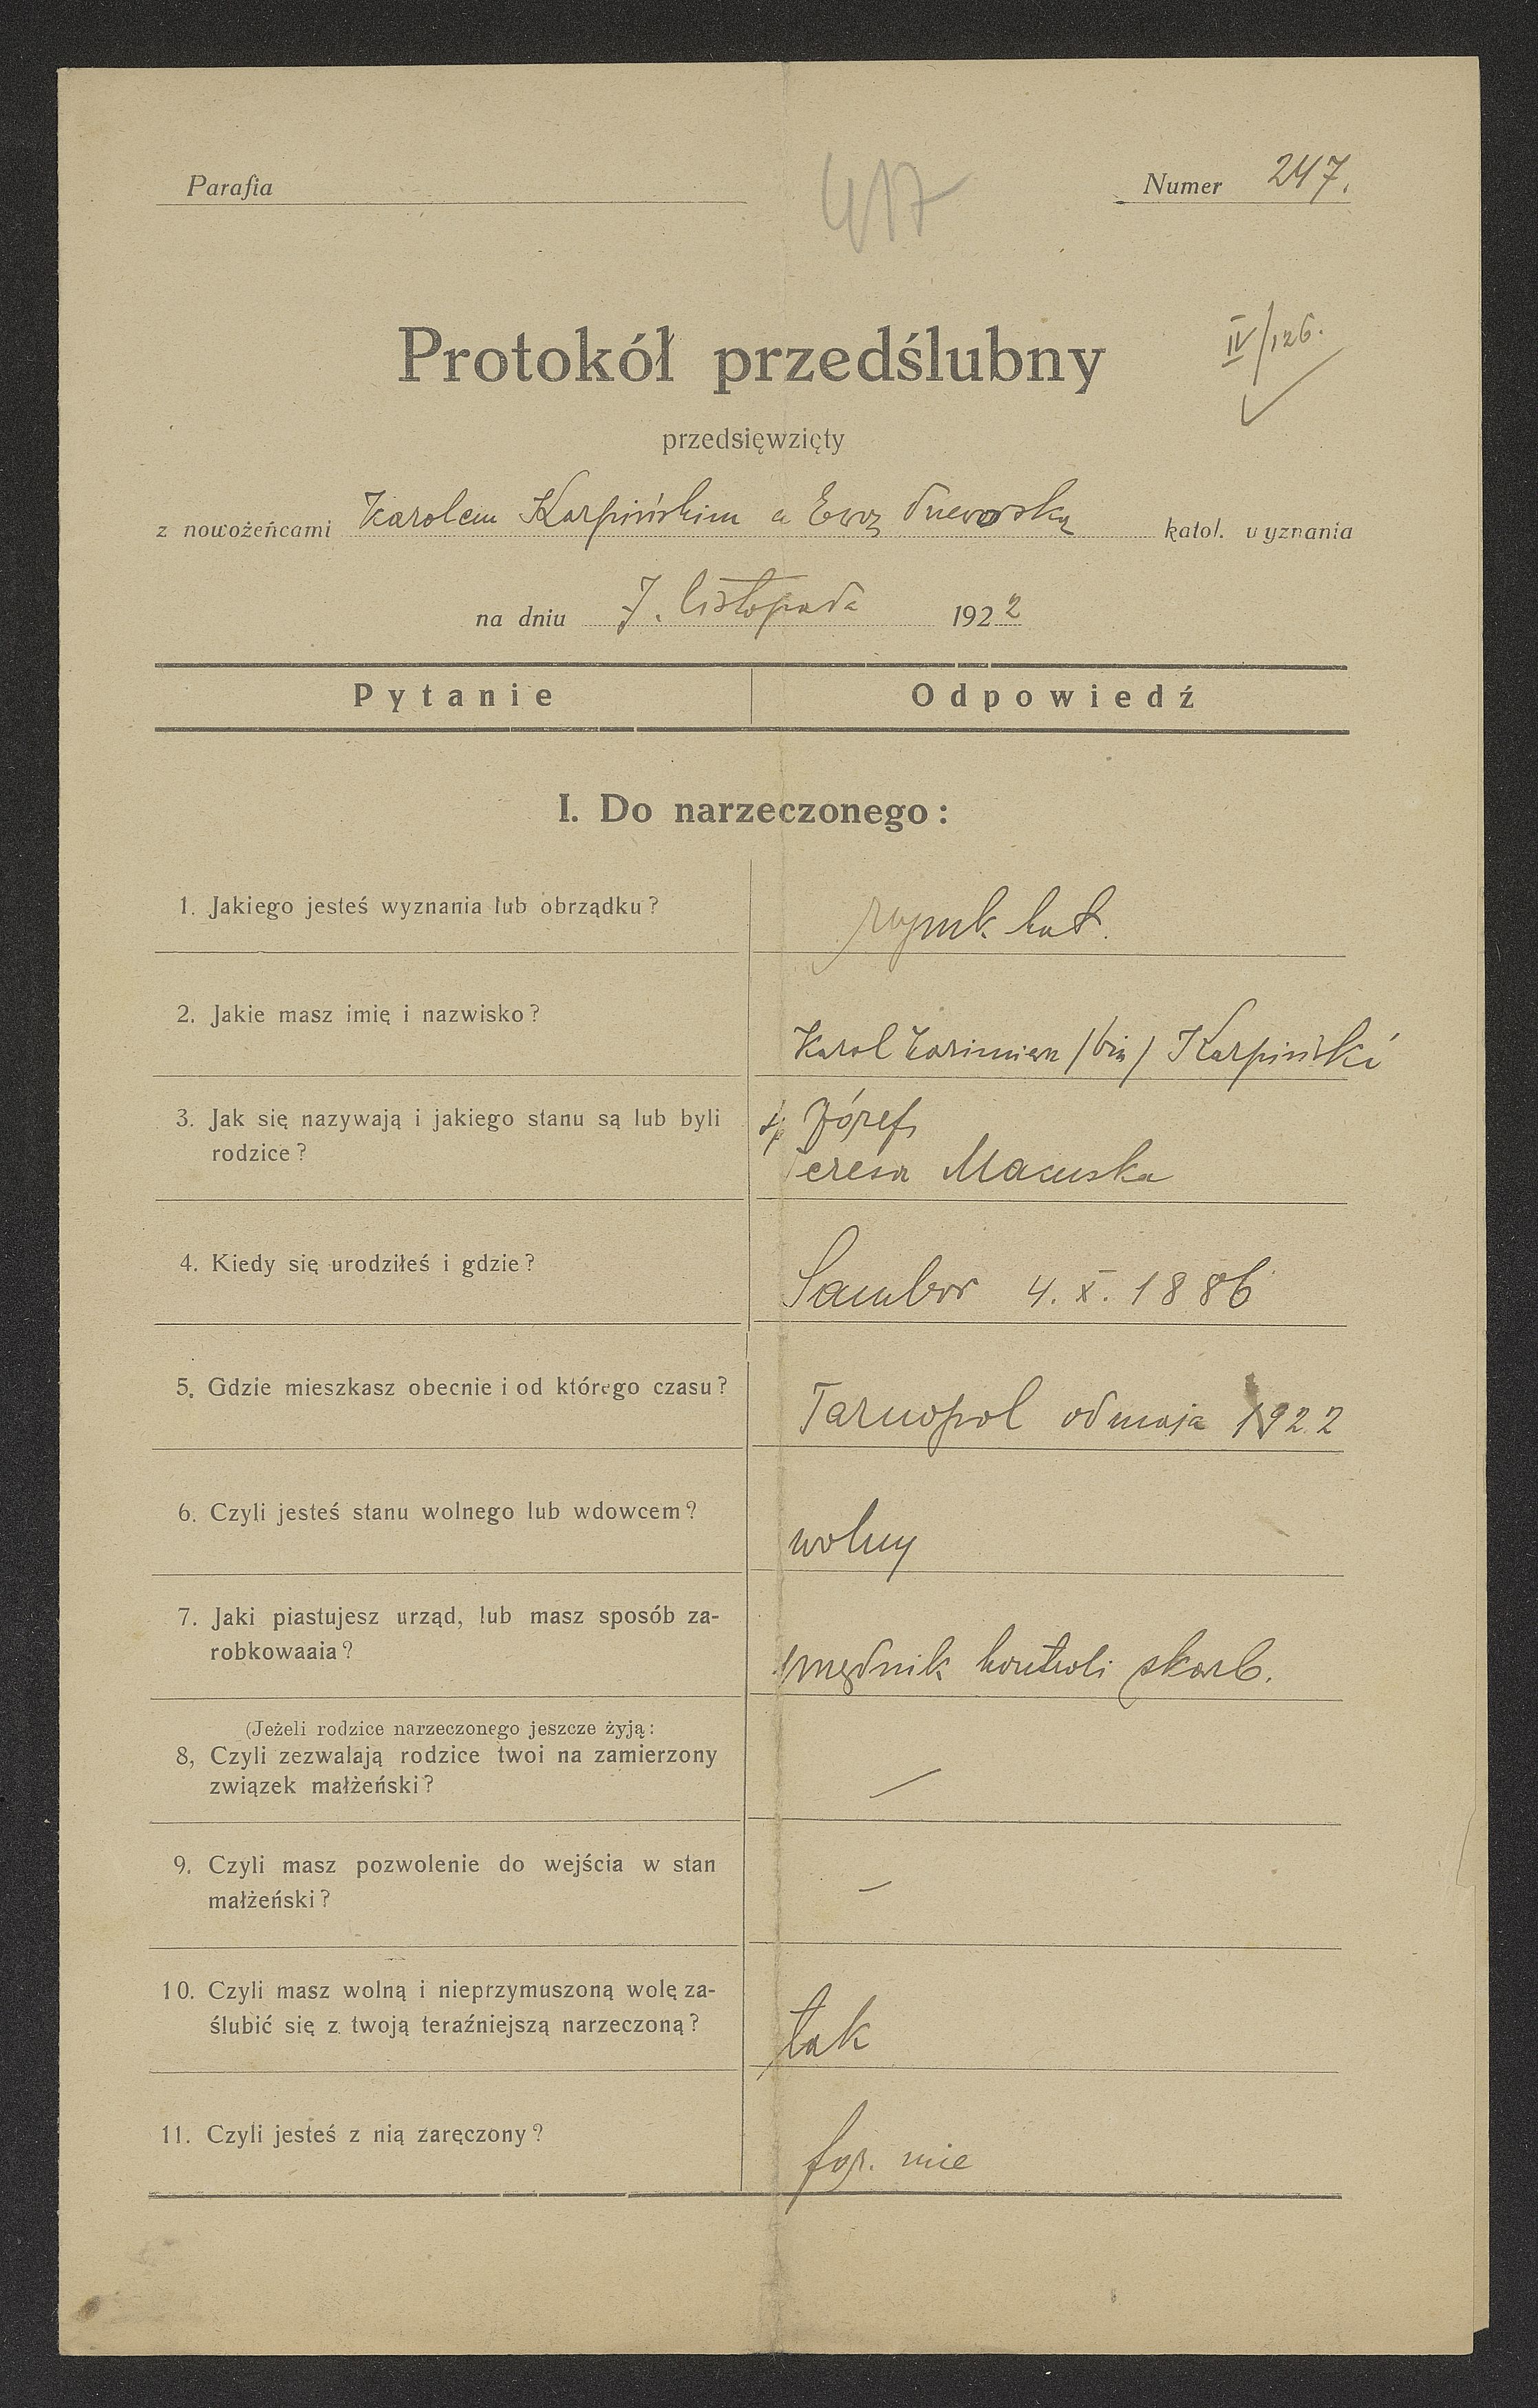 Parafia
417
Numer 247.
Protokół przedślubny
IV/126.
przedsięwzięty
z nowożeńcami Karolem Karpińskim a Ewą katol. wyznania
na dniu 7. listopada 1922
Pytanie Odpowiedź
I. Do narzeczonego:
1. Jakiego jesteś wyznania lub obrządku?
rzymk. kat.
2. Jakie masz imię i nazwisko?
Karol Kazimierz /bin/ Karpiński
3. Jak się nazywają i jakiego stanu są lub byli
rodzice?
Józef
Teresa
4. Kiedy się urodziłeś i gdzie?
Sambor 4. X. 1886
5. Gdzie mieszkasz obecnie i od którego czasu?
Tarnopol od maja 1922
6. Czyli jesteś stanu wolnego lub wdowcem?
wolny
7. Jaki piastujesz urząd, lub masz sposób za-
robkowaaia?
urzędnik kontroli skarb.
(Jeżeli rodzice narzeczonego jeszcze żyją:
8, Czyli zezwalają rodzice twoi na zamierzony
związek małżeński?
—
9. Czyli masz pozwolenie do wejścia w stan
małżeński?
—
10. Czyli masz wolną i nieprzymuszoną wolę za-
ślubić się z twoją teraźniejszą narzeczoną?
tak
11. Czyli jesteś z nią zaręczony?
nie